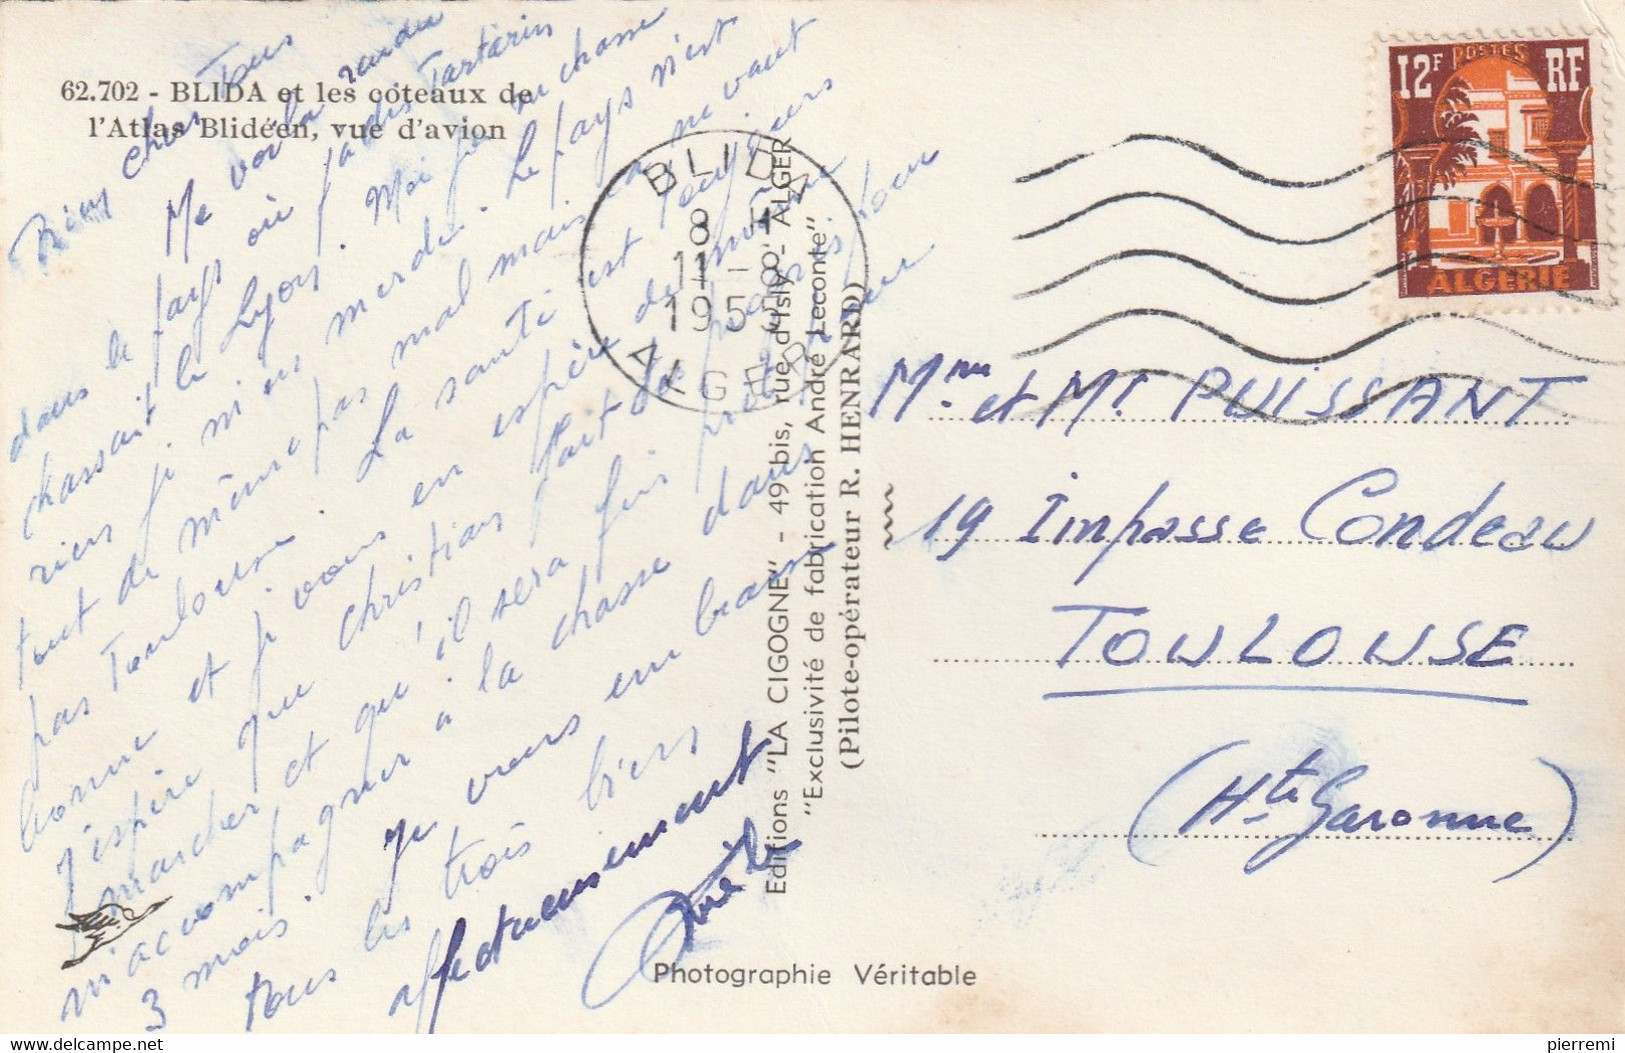 62.702 - BLIDA et les coteaux de
l'Atlas Blidéen, vue d'avion
Bien chers Tous
Me voilà rendu
dans le pays où jadis Tartarin
chassait le Lyon. Moi je ne chasse
rien je m'en merde. Le pays n'est
tout de même pas mal mais ça ne vaut
pas Toulouse. La santé est toujours
bonne et je vous en espère de même
J'espère que christian fait de
marcher et qu'il sera fin prêt pour
m'accompagner à la chasse dans
3 mois. Je vous embrasse
tous les trois bien
affectueusement
BLIDA
8 H
11 - 1
195
ALGER
12F POSTES RF
ALGERIE
Editions "LA CIGOGNE" - 49 bis, rue d'Isly - ALGER
"Exclusivité de fabrication André Leconte"
(Pilote-opérateur R. HENRARD)
Mme et Mr PUISSANT
19 Impasse Condeau
TOULOUSE
(Hte Garonne)
Photographie Véritable
delcampe.net
pierremi